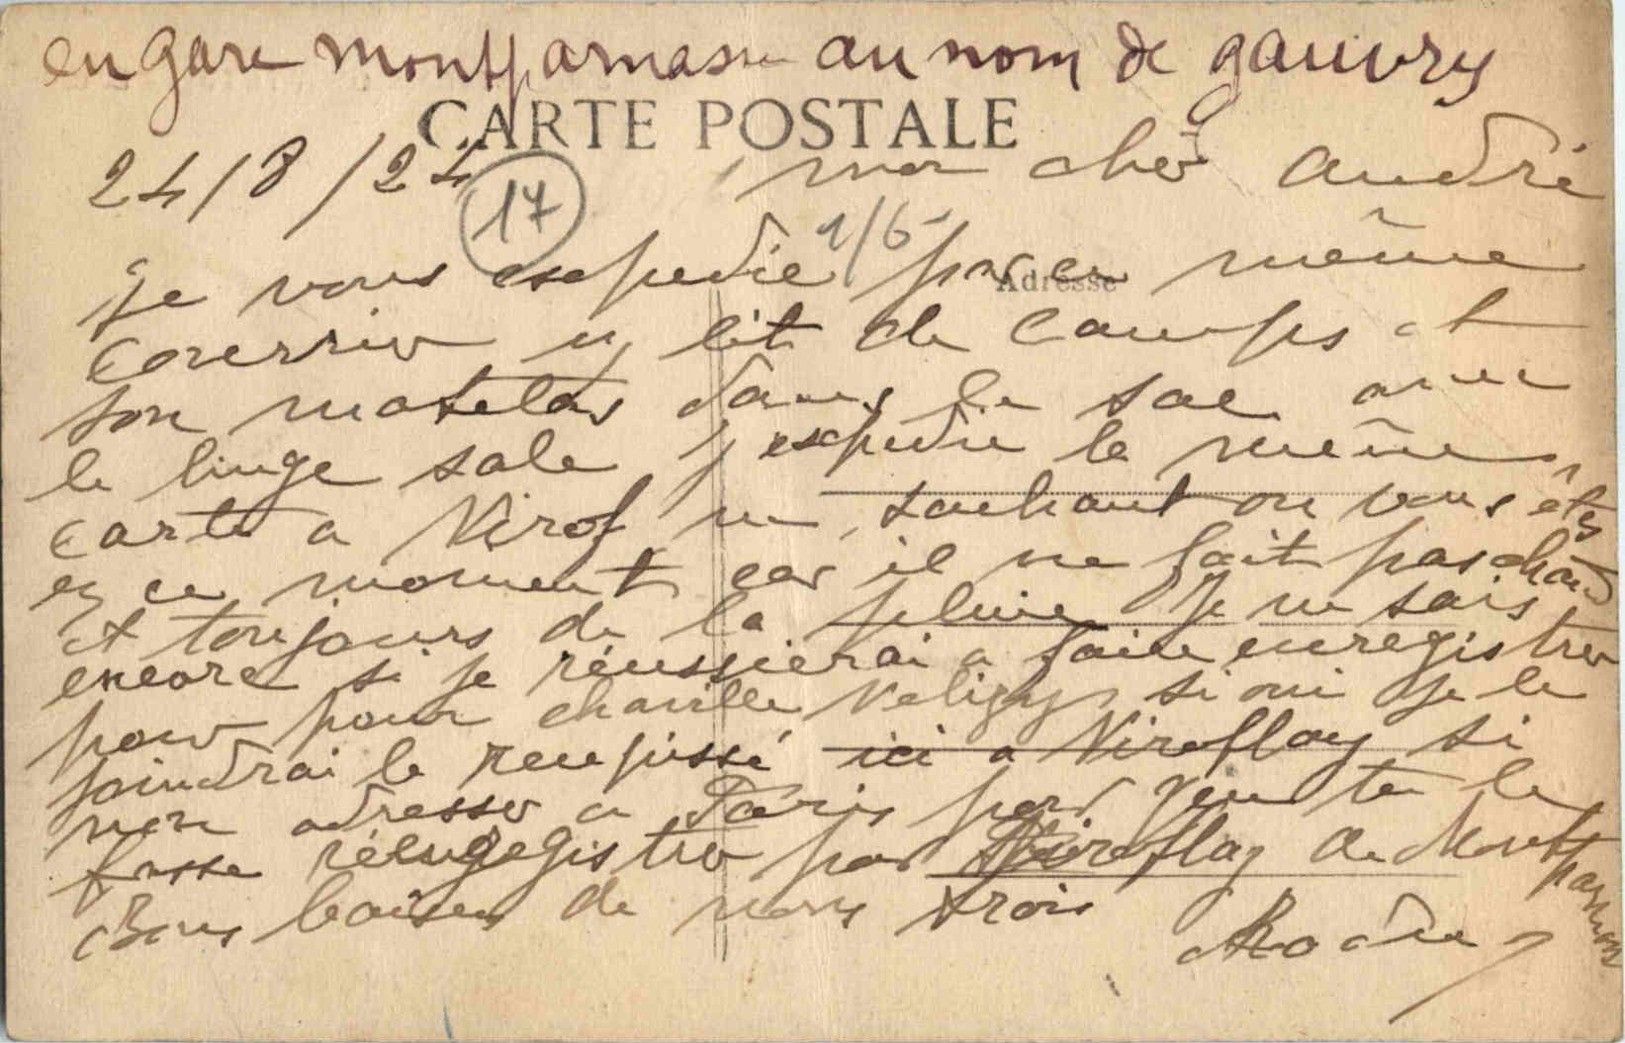 en gare montparnasse au nom de gauvry
CARTE POSTALE
24/8/24 mon cher andré
17
1/6
Adresse
je vous expedie par ce même
courrier lit de camps et
son matelas dans le sac avec
le linge sale j'expedie la même
carte a Virof ne sachant ou vous êtes
en ce moment car il ne fait pas chaud
et toujours de la pluie je ne sais
encore si je réussierai a faire enregistrer
pour pour chaville Velizy si oui je le
joindrai le recepissé ici a Viroflay si
non adresser a Paris pour le
fasse par Viroflay de Montparnasse
Bons baisers de nous trois